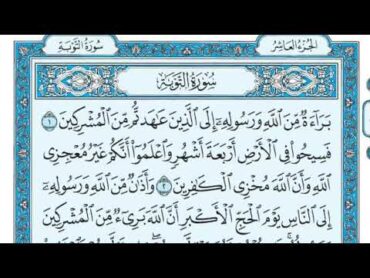 الجزء العاشر
سورة التوبة
سُورَةُ التَّوْبَةِ
بَرَاءَةٌ مِّنَ اللَّهِ وَرَسُولِهِ إِلَى الَّذِينَ عَاهَدتُّم مِّنَ الْمُشْرِكِينَ ١
فَسِيحُوا فِي الْأَرْضِ أَرْبَعَةَ أَشْهُرٍ وَاعْلَمُوا أَنَّكُمْ غَيْرُ مُعْجِزِي
اللَّهِ وَأَنَّ اللَّهَ مُخْزِي الْكَافِرِينَ ٢ وَأَذَانٌ مِّنَ اللَّهِ وَرَسُولِهِ
إِلَى النَّاسِ يَوْمَ الْحَجِّ الْأَكْبَرِ أَنَّ اللَّهَ بَرِيءٌ مِّنَ الْمُشْرِكِينَ